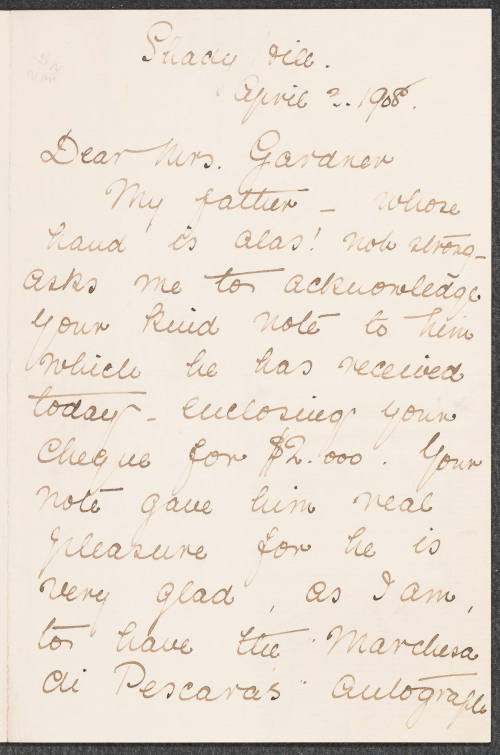 Shady Hill.
April 2. 1908.
Dear Mrs. Gardner
My father - whose
hand is alas! not strong -
asks me to acknowledge
your kind note to him
which he has received
today - enclosing your
cheque for $2.000. Your
note gave him real
pleasure for he is
very glad, as I am,
to have the "Marchesa
di Pescara's" autograph